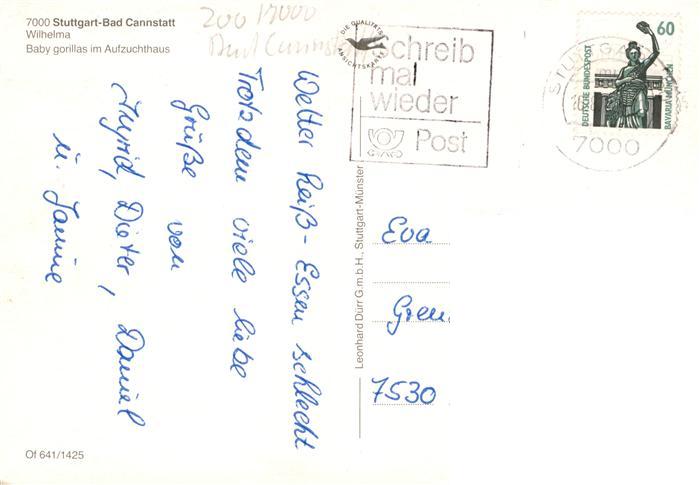 7000 Stuttgart-Bad Cannstatt
Wilhelma
Baby gorillas im Aufzuchthaus
200 17000
Bad Cannstatt
DIE QUALITÄTS
ANSICHTSKARTE
schreib
mal
wieder
Post
60
DEUTSCHE BUNDESPOST
BAVARIA MÜNCHEN
STUTTGART
7000
Wetter heiß - Essen schlecht
Trotzdem viele liebe
Grüße von
Astrid, Dieter, Daniel
u. Janine
Leonhard Dürr G.m.b.H., Stuttgart-Münster
Eva
Gren
7530
Of 641/1425